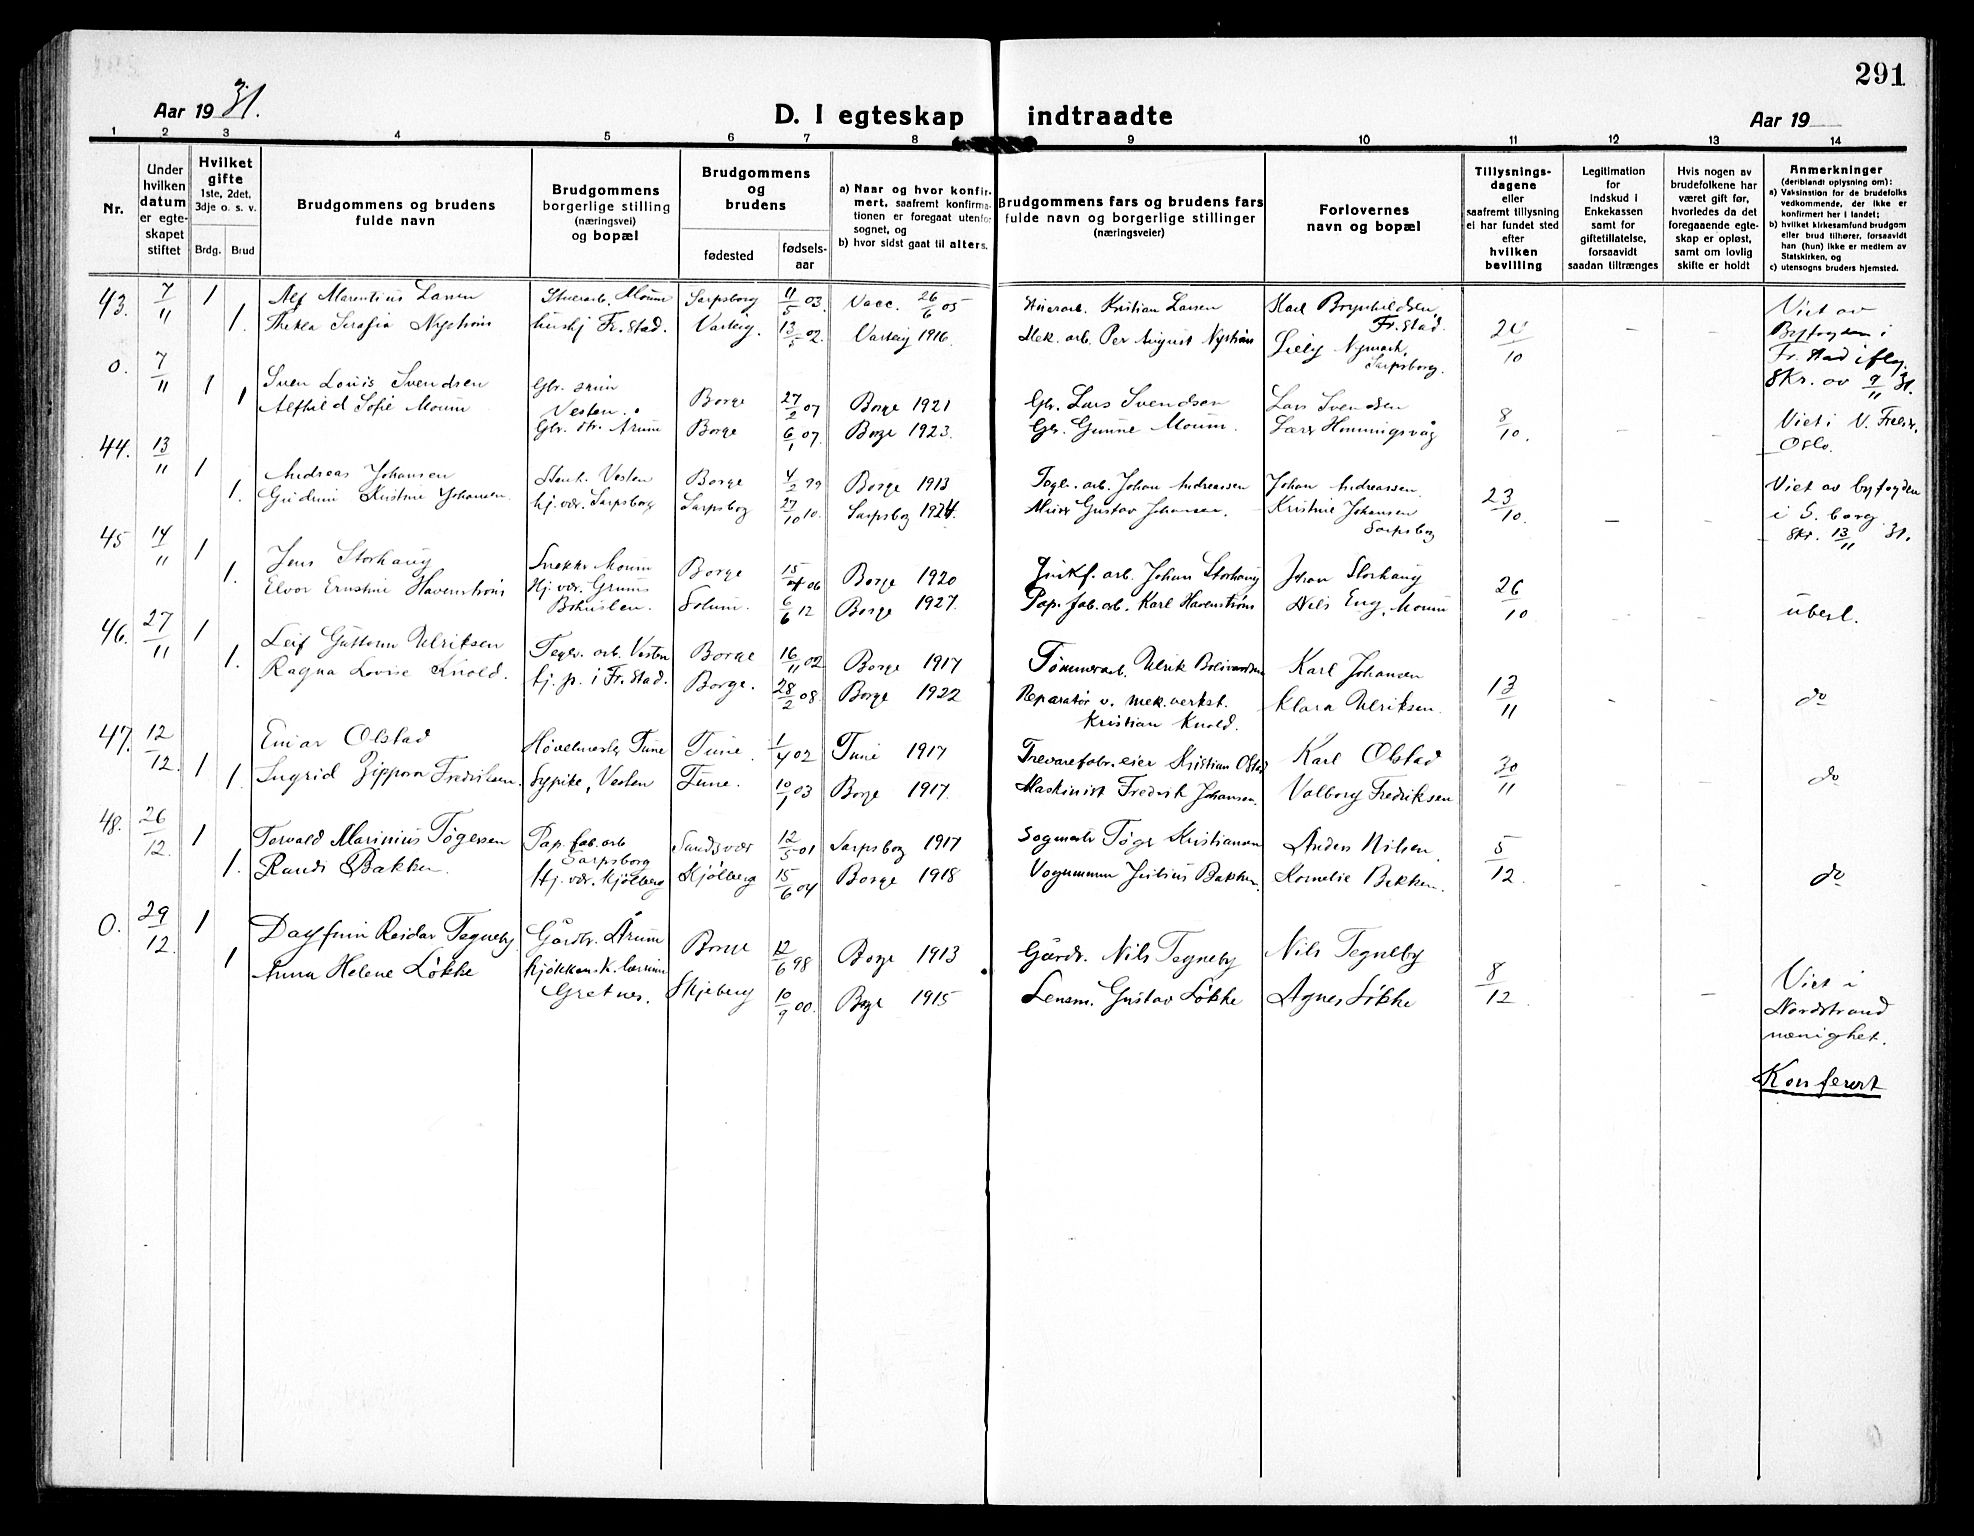 291
Aar 1931.
D. I egteskap indtraadte
Aar 19
1 2 3 4 5 6 7 8 9 10 11 12 13 14
Nr.
Under hvilken datum er egteskapet stiftet
Hvilket gifte
1ste, 2det, 3dje o. s. v.
Brdg. Brud
Brudgommens og brudens fulde navn
Brudgommens borgerlige stilling (næringsvei) og bopæl
Brudgommens og brudens
fødested
fødselsaar
a) Naar og hvor konfirmert, saafremt konfirmationen er foregaat utenfor sognet, og
b) hvor sidst gaat til alters.
Brudgommens fars og brudens fars fulde navn og borgerlige stillinger (næringsveier)
Forlovernes navn og bopæl
Tillysningsdagene eller saafremt tillysning ei har fundet sted efter hvilken bevilling
Legitimation for Indskud i Enkekassen samt for giftetillatelse, forsaavidt saadan tiltrænges
Hvis nogen av brudefolkene har været gift før, hvorledes da det foregaaende egteskap er opløst, samt om lovlig skifte er holdt
Anmerkninger
(deriblandt oplysning om):
a) Vaksination for de brudefolks vedkommende, der ikke er konfirmert her i landet;
b) hvilket kirkesamfund brudgom eller brud tilhører, forsaavidt han (hun) ikke er medlem av Statskirken, og
c) utensogns bruders hjemsted.
43. 7/11 1 Alf Marentius Larsen Moum Sarpsborg 11/5 03 Vacc. 26/6 05 Kristian Larsen Karl Brynhildsen, Fr.stad. 10 – – Viet av
1. Thekla Serafia Nystrøm hushj Fr.stad. Varteig. 13/5 02. Varteig 1916. Mek. arb. Per August Nystrøm Nymark, Sarpsborg. Byfogden i
Fr.stad iflg.
Skr. av 9/11 31.
0. 7/11 1 Sven Louis Svendsen Gbr. søn Vesten. Borge 27/2 07 Borge 1921 Gbr. Lars Svendsen Lars Svendsen 8/10. Viet i V. Freds.
1 Alfhild Sofie Moum Gbr. dtr. Årum Borge 6/1 07. Borge 1923. Gbr. Gunne Moum. Lars Hemmigsvåg Oslo.
44. 13/11 1 Andreas Johansen Vesten Borge 4/2 99 Borge 1913 Tegl. arb. Johan Andreassen Johan Andreassen 23/10. Viet av byfogden
1. Kristine Johansen. hj. vær. Sarpsborg Sarpsborg 27/10 10. Sarpsborg 1924. Gustav Johansen. Kristine Johansen Sarpsborg i S. borg.
Skr. 13/11 31.
45 14/11 1 Jens Storhaug Snekker Moum Borge 15/4 06 Borge 1920 arb. Johan Storhaug Johan Storhaug 26/10
1. Elvor Ernstine Havenstrøm Hj. vær. Bohuslen. Solum. 6/6 12 Borge 1927. Pap. fab. arb. Karl Havenstrøm Nils Eng, Moum uberl.
46. 27/11 1 Leif Guttorm Ulriksen Teglv. arb. Vesten Borge 16/11 02 Borge 1917 Tømmerarb. Ulrik Karl Johansen 13/11 do
1. Ragna Lovise Knold. tj. p. i Fr.stad. Borge. 28/2 08 Borge 1922 Reparatør v. mek. verkst. Kristian Knold. Klara Ulriksen.
47. 12/12. 1 Einar Olstad Høvelmester Tune Tune. 1/4 02 Tune 1917 Trevarefabr. eier Kristian Olstad Karl Olstad 30/11 do
1. Ingrid Zippora Fredriksen. Sypike, Vesten Tune. 10/1 03 Borge 1917. Maskinist Fredrik Johansen. Valborg Fredriksen
48. 26/12. 1 Torvald Marinius Tøgersen Pap. fab. arb Sarpsborg Sandsvær 12/5 01 Sarpsborg 1917 Sagmester Tøger Kristiansen Anders Nilsen 5/12. do
1. Randi Bakken. Hj. vær. Kjølberg Kjølberg 15/6 04 Borge 1918 Vognmann Julius Bakken. Kornelie Bakken.
0. 29/12. 1 Dagfinn Reidar Tegneby Gårdbr. Årum Borge 12/6 98 Borge 1913 Gårdbr. Nils Tegneby Nils Tegneby 8/12 – Viet i
1 Anna Helene Løkke kjøkkensk. lærerinne Gretnes. Skjeberg 10/9 00. Borge 1915 Lensm. Gustav Løkke Agnes Løkke Nordstrand
menighet.
Konferert